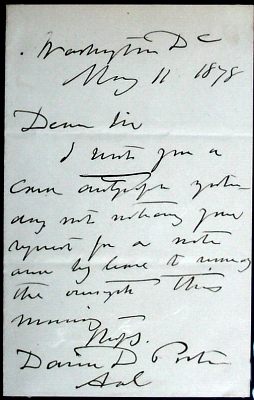 Washington DC
May 11 1878
Dear Sir
I sent you a
Card autograph yester-
day not noticing your
request for a note
and beg leave to remedy
the oversight this
morning
Resp.
David D Porter
Adl